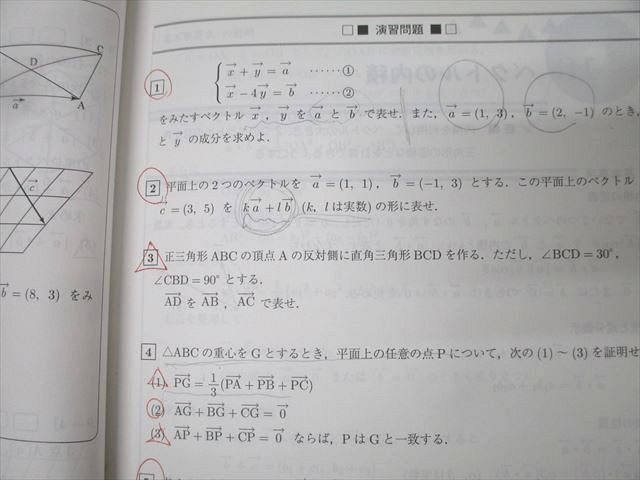 C
D
A
→a
→c
→b = (8, 3) をみ
□■ 演習問題 ■□
1
→x + →y = →a ……①
→x − 4→y = →b ……②
をみたすベクトル →x , →y を →a と →b で表せ. また, →a = (1, 3), →b = (2, −1) のとき,
と →y の成分を求めよ.
2 平面上の2つのベクトルを →a = (1, 1), →b = (−1, 3) とする. この平面上のベクトル
→c = (3, 5) を k→a + l→b (k, l は実数) の形に表せ.
3 正三角形 ABC の頂点 A の反対側に直角三角形 BCD を作る. ただし, ∠BCD = 30°,
∠CBD = 90° とする.
→AD を →AB , →AC で表せ.
4 △ABC の重心を G とするとき, 平面上の任意の点 P について, 次の (1) ～ (3) を証明せ
(1) →PG = 1/3(→PA + →PB + →PC)
(2) →AG + →BG + →CG = →0
(3) →AP + →BP + →CP = →0 ならば, P は G と一致する.